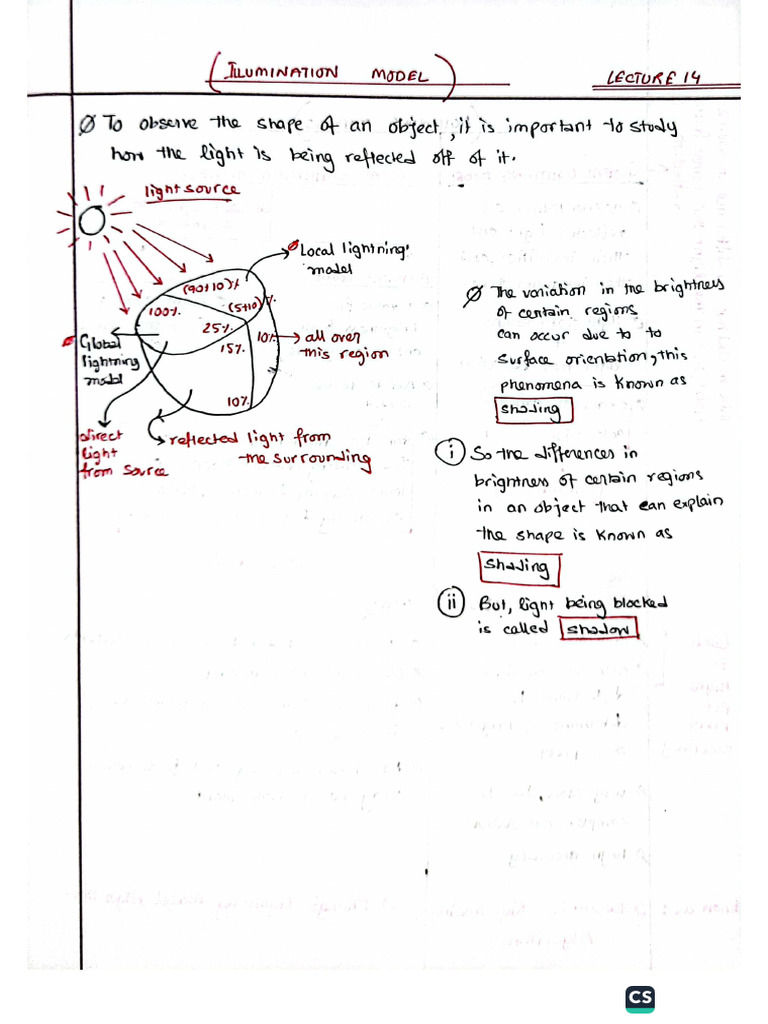 (ILLUMINATION MODEL)
LECTURE 14
Ø To observe the shape of an object, it is important to study
how the light is being reflected off of it.
light source
Local lightning
model
(90+10)%
100%
(5+10)%
25%
15%
10%
all over
this region
10%
Global
lightning
model
direct
light
from source
reflected light from
the surrounding
Ø The variation in the brightness
of certain regions
can occur due to to
surface orientation, this
phenomena is known as
shading
i So the differences in
brightness of certain regions
in an object that can explain
the shape is known as
shading
ii But, light being blocked
is called shadow
CS